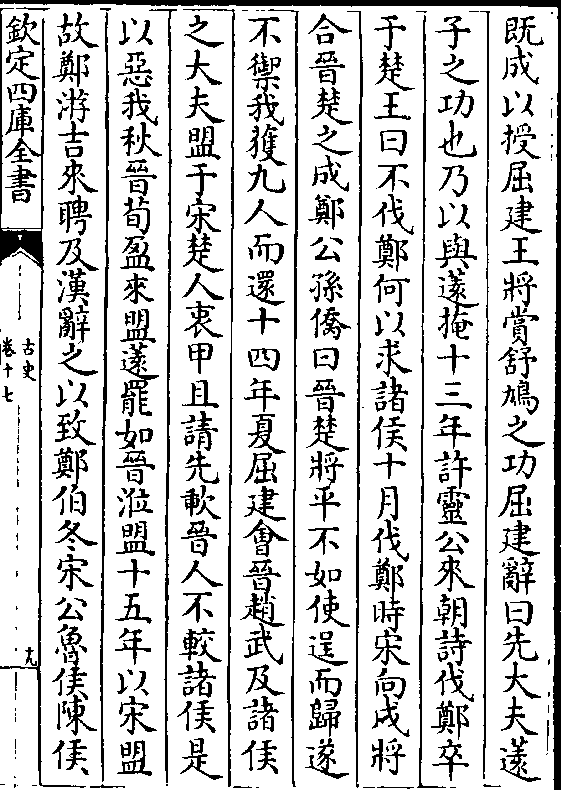 既成以授屈建王將賞舒鳩之功屈建辭曰先大夫薳
子之功也乃以與薳掩十三年許靈公來朝請伐鄭卒
于楚王曰不伐鄭何以求諸侯十月伐鄭時宋向戌將
合晉楚之成鄭公孫僑曰晉楚將平不如使逞而歸遂
不禦我獲九人而還十四年夏屈建會晉趙武及諸侯
之大夫盟于宋楚人衷甲且請先軟晉人不較諸侯是
以惡我秋晉荀盈來盟薳罷如晉涖盟十五年以宋盟
故鄭游吉來聘及漢辭之以致鄭伯冬宋公魯侯陳侯
欽定四庫全書
古史
卷十七
十九